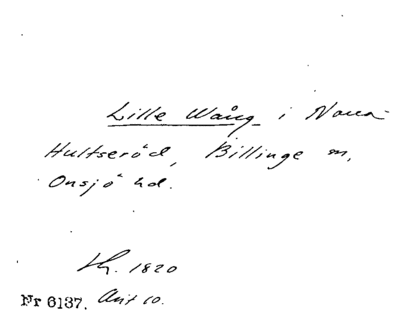 Lille Wång i Norra
Hultseröd, Billinge sn,
Onsjö hd.
1820
Nr 6137. Avit 10.